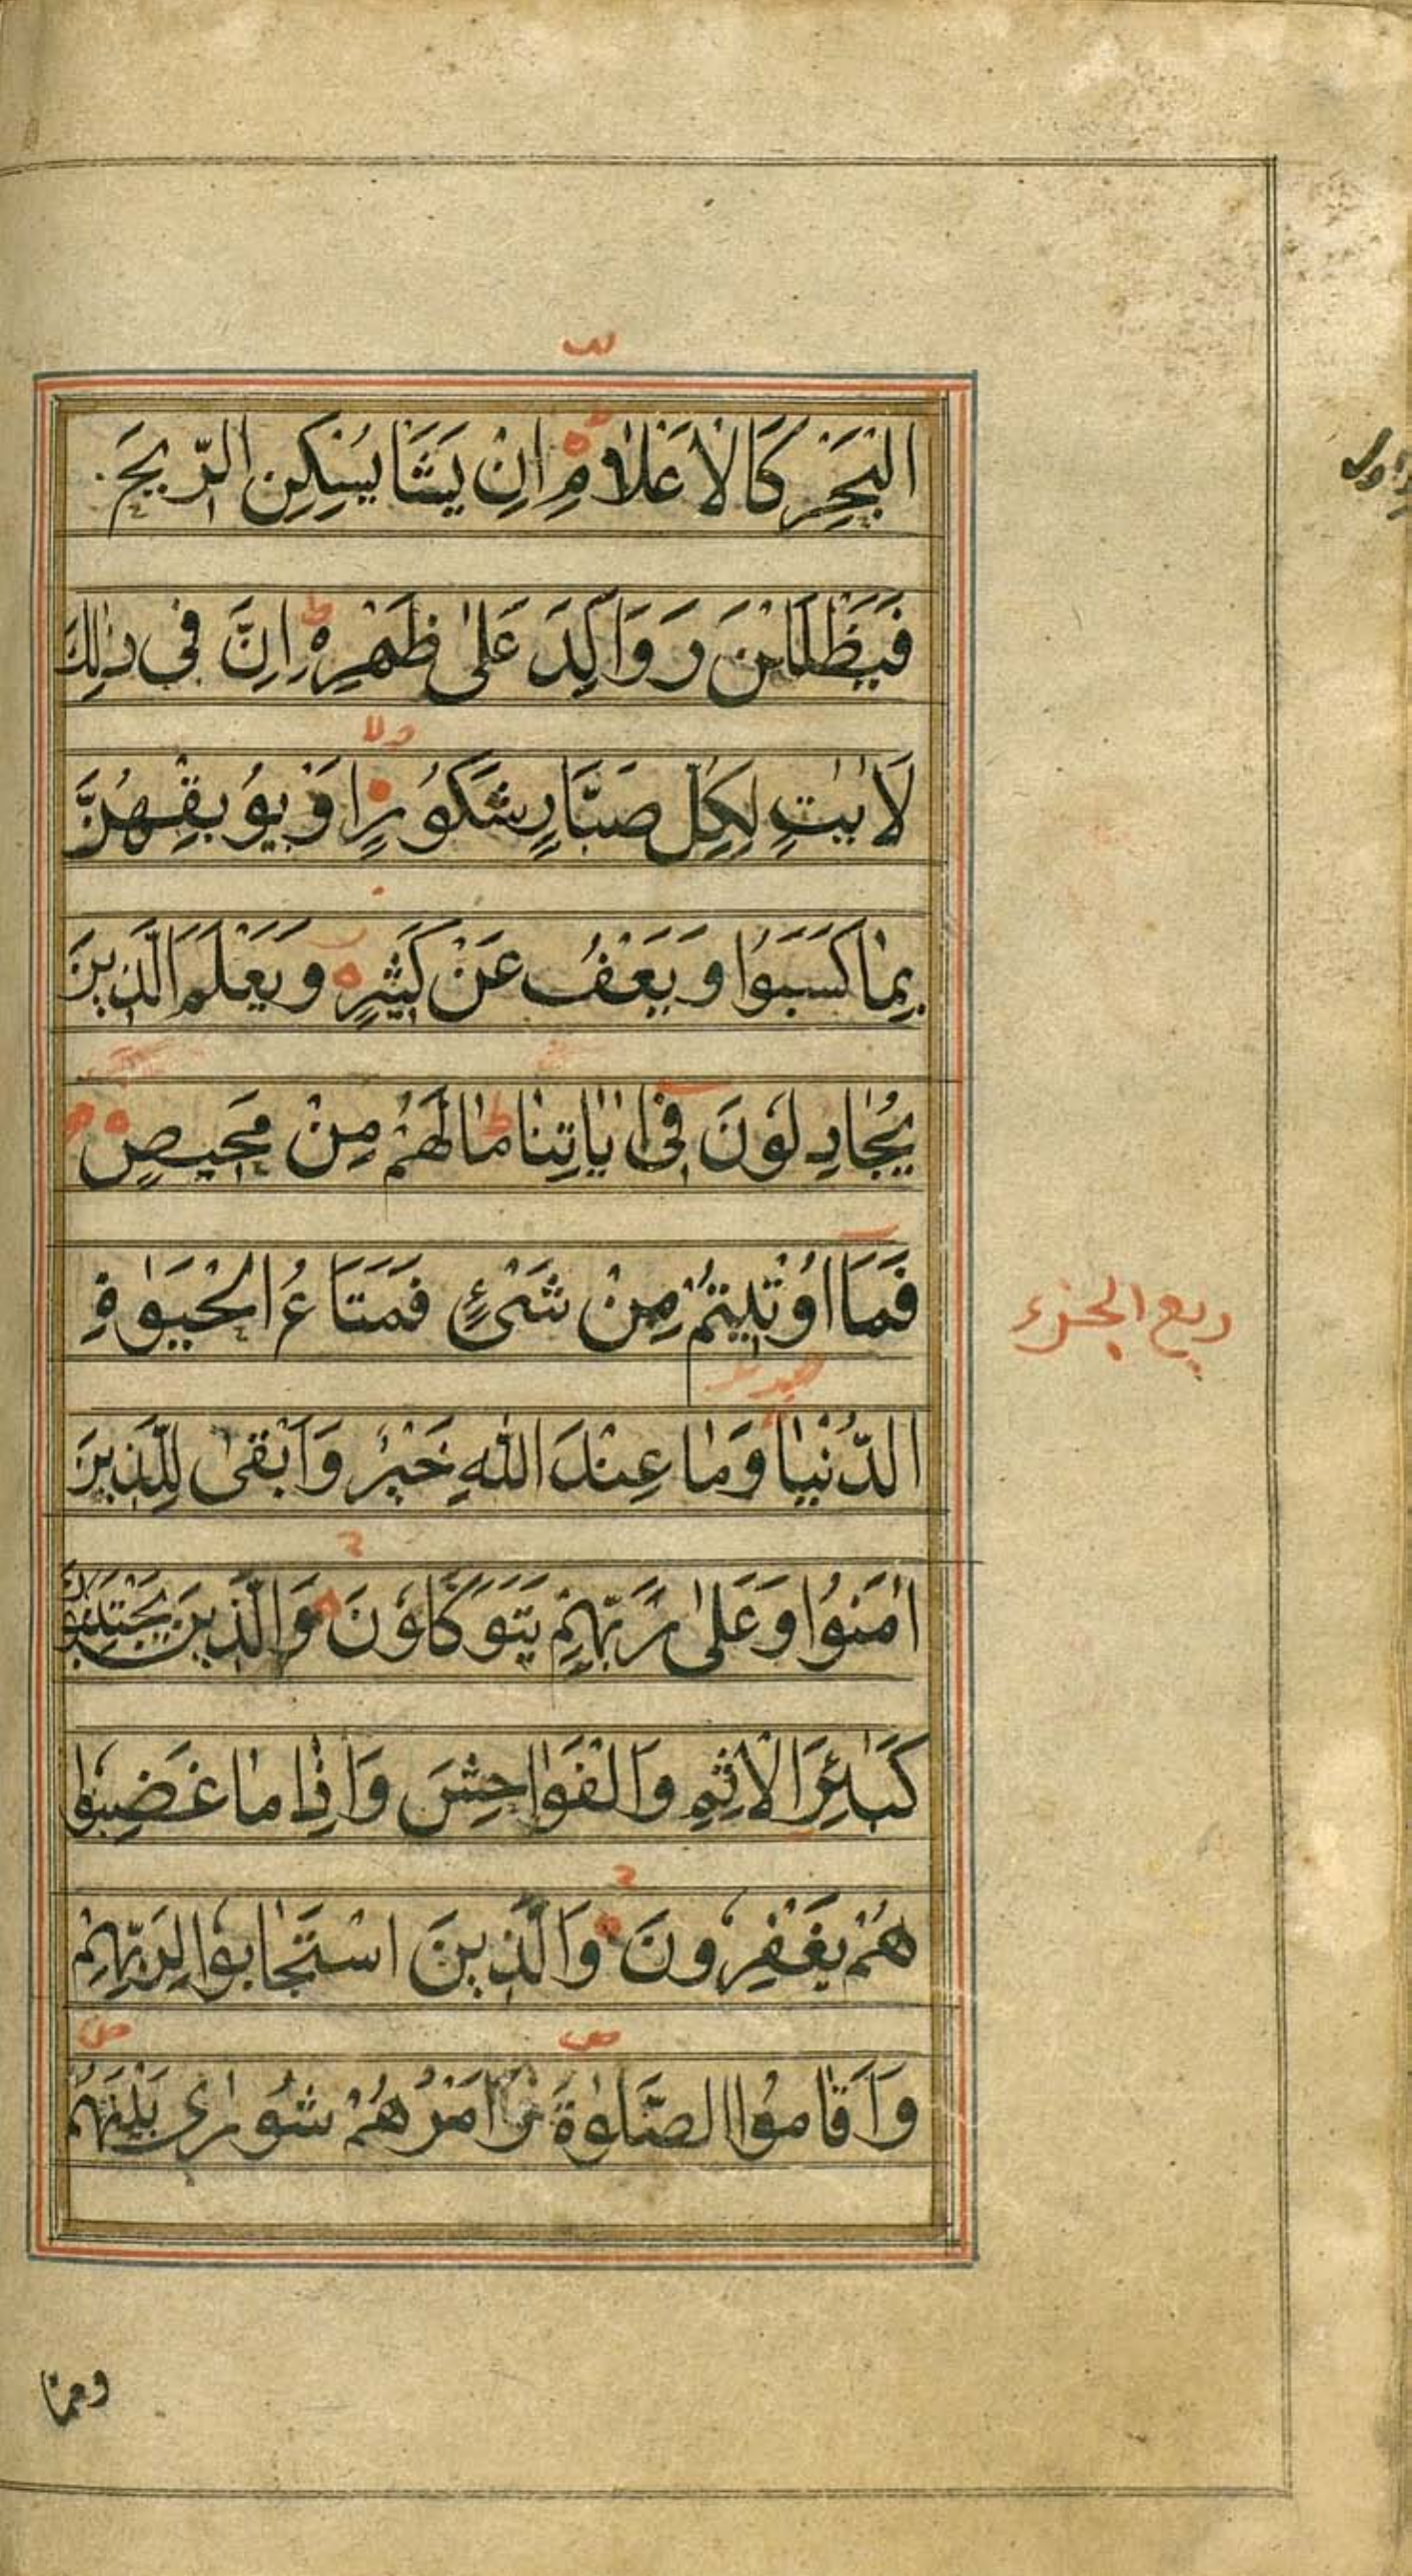 الْبَحْرِ كَالْاَعْلَامِ اِنْ يَشَا يُسْكِنِ الرِّيحَ
فَيَظْلَلْنَ رَوَاكِدَ عَلٰى ظَهْرِهٖ ط اِنَّ فِى ذٰلِكَ
لَاٰيٰتٍ لِكُلِّ صَبَّارٍ شَكُوْرٍ اَوْ يُوْبِقْهُنَّ
بِمٰا كَسَبُوْا وَ يَعْفُ عَنْ كَثِيْرٍ وَ يَعْلَمَ الَّذِينَ
يُجٰادِلُوْنَ فِى اٰيٰاتِنٰا ط مٰا لَهُمْ مِنْ مَحِيصٍ
فَمَا اُوْتِيْتُمْ مِنْ شَىْءٍ فَمَتَاعُ الْحَيَوٰةِ
الدُّنْيٰا وَمٰا عِنْدَ اللّٰهِ خَيْرٌ وَاَبْقٰى لِلَّذِينَ
اٰمَنُوْا وَ عَلٰى رَبِّهِمْ يَتَوَكَّلُوْنَ وَالَّذِينَ يَجْتَنِبُوْنَ
كَبٰائِرَ الْاِثْمِ وَالْفَوٰاحِشَ وَاِذٰا مٰا غَضِبُوْا
هُمْ يَغْفِرُونَ وَالَّذِينَ اسْتَجٰابُوْا لِرَبِّهِمْ
وَاَقٰامُوا الصَّلٰوةَ وَاَمْرُهُمْ شُوْرٰى بَيْنَهُمْ
ربع الجزء
وممّا